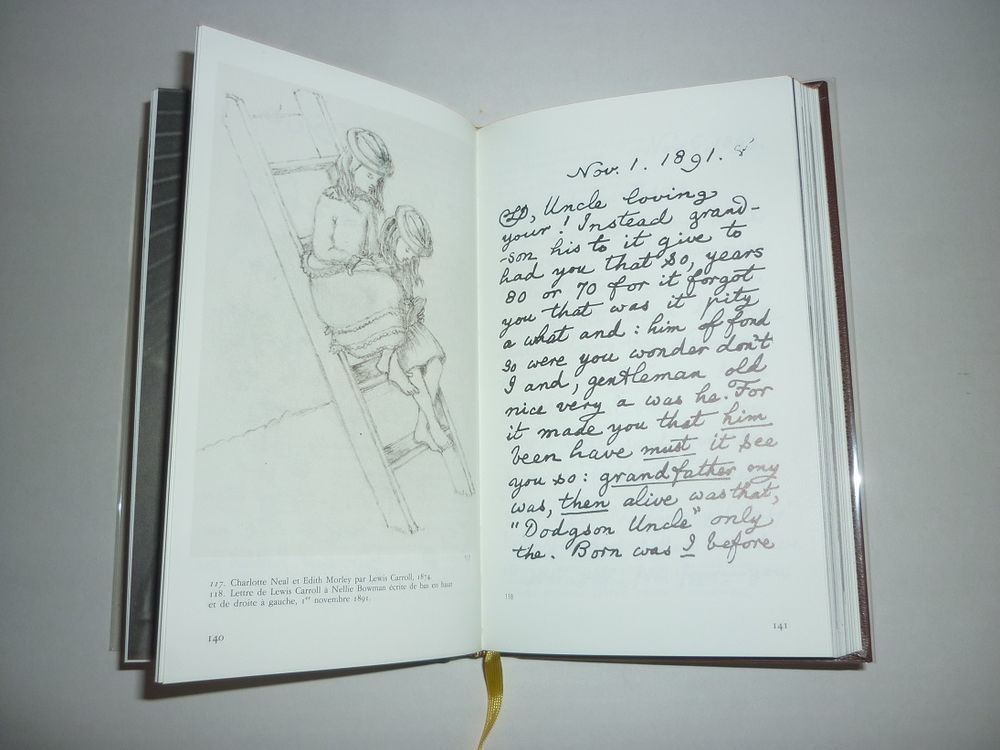 117. Charlotte Neal et Edith Morley par Lewis Carroll, 1874.
118. Lettre de Lewis Carroll à Nellie Bowman écrite de bas en haut
et de droite à gauche, 1er novembre 1891.
140
Nov. 1. 1891.
, Uncle loving
your! Instead grand-
-son his to it give to
had you that so, years
80 or 70 for it forgot
you that was it pity
a what and: him of fond
so were you wonder don't
I and, gentleman old
nice very a was he. For
it made you that him
been have must it see
you so: grandfather my
was, then alive was that,
"Dodgson Uncle" only
the. Born was I before
118
141